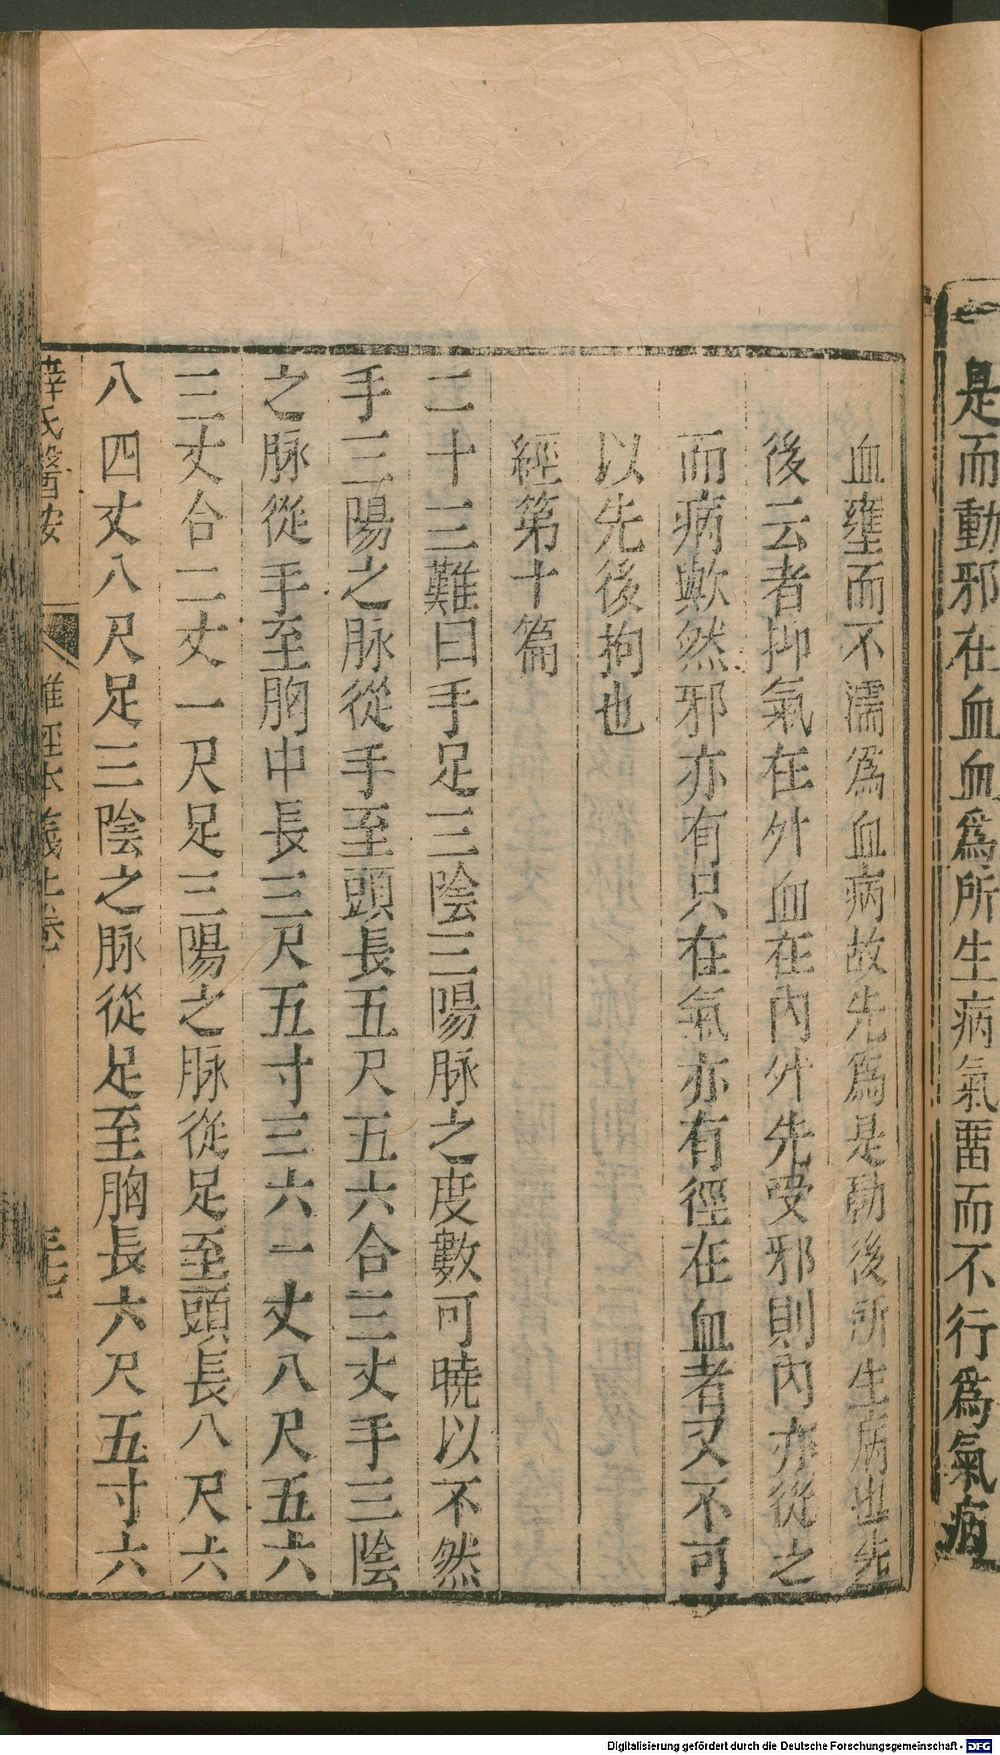 是而動邪在血血爲所生病氣畱而不行爲氣病
血壅而不濡爲血病故先爲是動後所生病也先
後云者抑氣在外血在內外先受邪則內亦從之
而病歟然邪亦有只在氣亦有徑在血者又不可
以先後拘也
經第十篇
二十三難曰手足三陰三陽脉之度數可曉以不然
手三陽之脉從手至頭長五尺五六合三丈手三陰
之脉從手至胸中長三尺五寸三六一丈八尺五六
三丈合二丈一尺足三陽之脉從足至頭長八尺六
八四丈八尺足三陰之脉從足至胸長六尺五寸六
薛氏醫按 難經本義上卷 三七
Digitalisierung gefördert durch die Deutsche Forschungsgemeinschaft - DFG